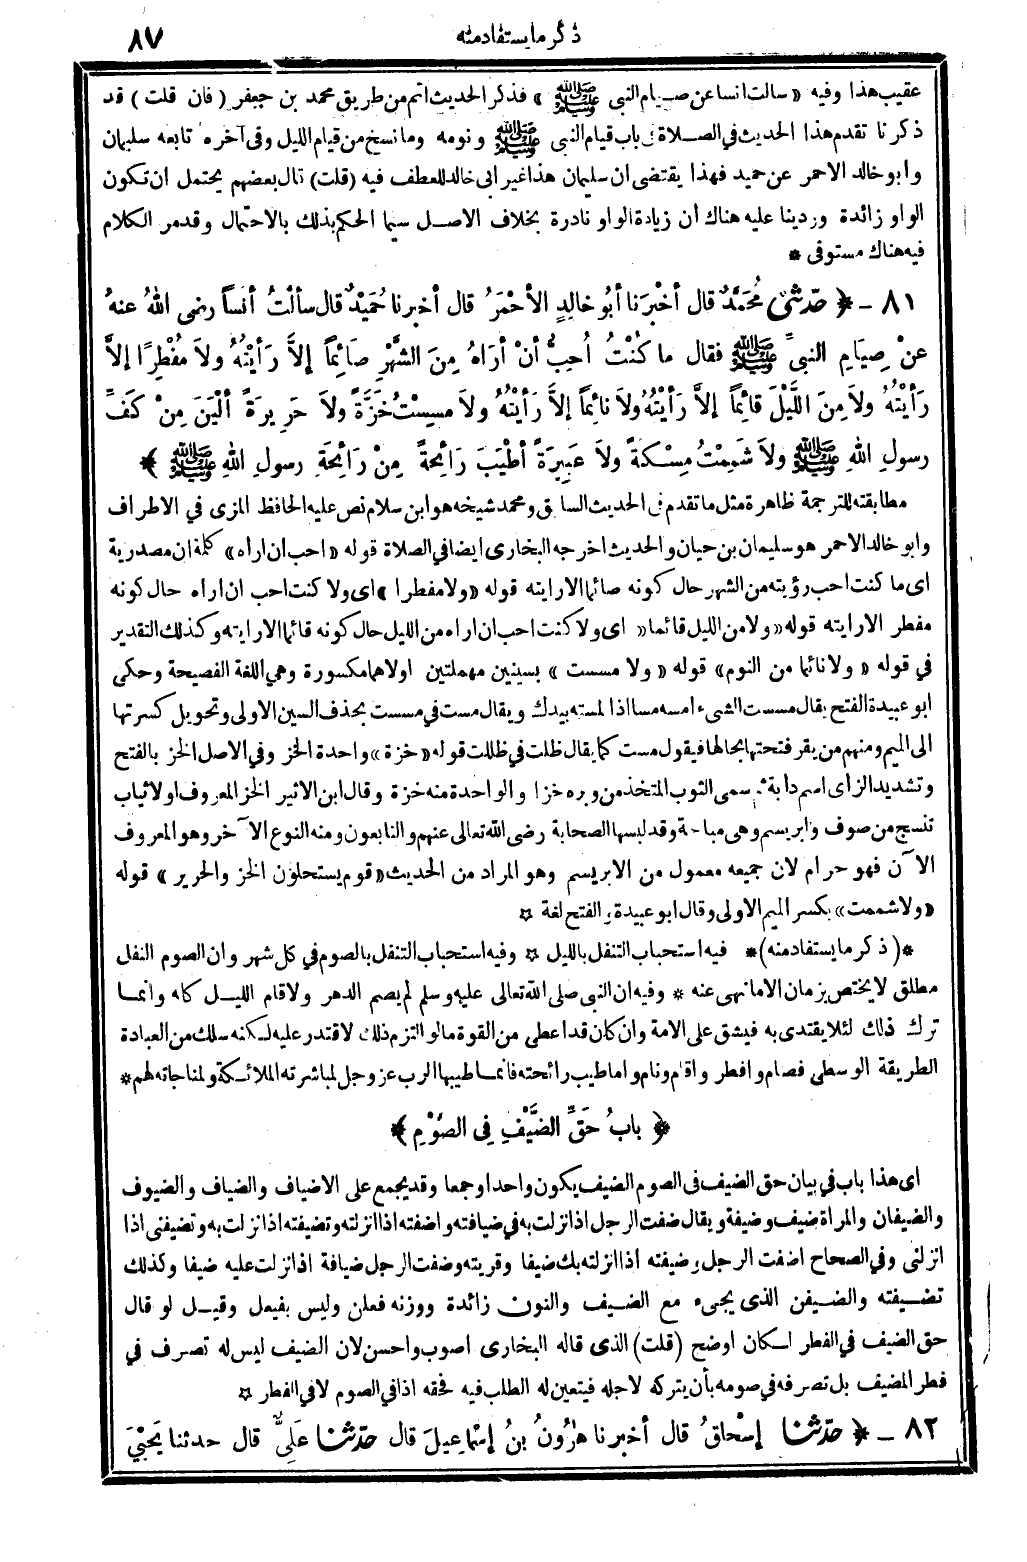 ذكر ما يستفاد منه
٨٧
عقيب هذا وفيه « سالت انسا عن صيام النبي ﷺ » فذكر الحديث اتم من طريق محمد بن جعفر ( فان قلت ) قد
ذكرنا تقدم هذا الحديث في الصلاة في باب قيام النبي ﷺ ونومه وما نسخ من قيام الليل وفي آخره تابعه سليمان
وابو خالد الاحمر عن حميد فهذا يقتضى ان سليمان هذا غير ابى خالد للعطف فيه (قلت) قال بعضهم يحتمل ان تكون
الواو زائدة ورد ينا عليه هناك أن زيادة الواو نادرة بخلاف الاصل سيما الحكم بذلك بالاحتمال وقد مر الكلام
فيه هناك مستوفى *
٨١ ـ ﴿ حَدَّثَنِي مُحَمَّدٌ قال أخْبَرَنا أبُو خالِدٍ الأحْمَرُ قال أخبرنا حُمَيْدٌ قال سألْتُ أنساً رضى اللهُ عنهُ
عنْ صِيَامِ النبيِّ ﷺ فقال ما كُنْتُ اُحِبُّ أنْ أرَاهُ مِنَ الشَّهْرِ صَائِماً إلاَّ رَأَيْتُهُ ولاَ مُفْطِرًا إلاَّ
رَأيْتُهُ ولاَ مِنَ اللَّيْلَ قائِماً إلاَّ رَأيْتُهُ ولاَ نائِماً إلاَّ رَأيْتُهُ ولاَ مسِسْتُ خَزَّةً ولاَ حَرِيرَةً ألْيَنَ مِنْ كَفِّ
رسولِ اللهِ ﷺ ولاَ شَمِمْتُ مِسْكَةً ولاَ عَبِيرَةً أطْيَبَ رَائِحَةً مِنْ رَائِحَةِ رسولِ اللهِ ﷺ ﴾
مطابقته للترجمة ظاهرة مثل ما تقدم في الحديث السابق ومحمد شيخه هو ابن سلام نص عليه الحافظ المزى في الاطراف
وابو خالد الاحمر هو سليمان بن حيان والحديث اخرجه البخارى ايضا في الصلاة قوله « احب ان اراه » كلمة ان مصدرية
اى ما كنت احب رؤيته من الشهر حال كونه صائما الا رايته قوله « ولا مفطرا » اى ولا كنت احب ان اراه حال كونه
مفطر الا رايته قوله « ولا من الليل قائما » اى ولا كنت احب ان اراه من الليل حال كونه قائما الا رايته وكذلك التقدير
في قوله « ولا نائما من النوم » قوله « ولا مسست » بسينين مهملتين اولاهما مكسورة وهي اللغة الفصيحة وحكى
ابو عبيدة الفتح يقال مسست الشىء امسه مسا اذا لمسته بيدك ويقال مست في مسست بحذف السين الاولى وتحويل كسرتها
الى الميم ومنهم من يقر فتحتها بحالها فيقول مست كما يقال ظلت في ظللت قوله « خزة » واحدة الخز وفي الاصل الخز بالفتح
وتشديد الزاى اسم دابة ثم سمى الثوب المتخذ من وبره خزا والواحدة منه خزة وقال ابن الاثير الخز المعروف اولا ثياب
تنسج من صوف وابريسم وهى مباحة وقد لبسها الصحابة رضى الله تعالى عنهم والتابعون ومنه النوع الآخر وهو المعروف
الآن فهو حرام لان جميعه معمول من الابريسم وهو المراد من الحديث « قوم يستحلون الخز والحرير » قوله
« ولا شممت » بكسر الميم الاولى وقال ابو عبيدة والفتح لغة *
*( ذكر ما يستفاد منه )* فيه استحباب التنفل بالليل * وفيه استحباب التنفل بالصوم في كل شهر وان الصوم النفل
مطلق لا يختص بزمان الا ما نهى عنه * وفيه ان النبي صلى الله تعالى عليه وسلم لم يصم الدهر ولا قام الليل كله وانما
ترك ذلك لئلا يقتدى به فيشق على الامة وان كان قد اعطى من القوة ما لو التزم ذلك لاقتدر عليه لكنه سلك من العبادة
الطريقة الوسطى فصام وافطر واقام ونام واما طيب رائحته فانما طيبها الرب عز وجل لمباشرته الملائكة ولمناجاته لهم *
﴿ بابُ حَقِّ الضَّيْفِ فِى الصَّوْمِ ﴾
اى هذا باب في بيان حق الضيف فى الصوم الضيف يكون واحدا وجمعا وقد يجمع على الاضياف والضياف والضيوف
والضيفان والمراة ضيف وضيفة ويقال ضفت الرجل اذا نزلت به في ضيافته واضفته اذا انزلته وتضيفته اذا نزلت به وتضيفنى اذا
انزلنى وفي الصحاح اضفت الرجل وضيفته اذا انزلته بك ضيفا وقريته وضفت الرجل ضيافة اذا نزلت عليه ضيفا وكذلك
تضيفته والضيفن الذى يجىء مع الضيف والنون زائدة ووزنه فعلن وليس بفيعل وقيل لو قال
حق الضيف في الفطر لكان اوضح (قلت) الذى قاله البخارى اصوب واحسن لان الضيف ليس له تصرف في
فطر المضيف بل تصرفه في صومه بأن يتركه لاجله فيتعين له الطلب فيه فحقه اذا في الصوم لا في الفطر *
٨٢ ـ ﴿ حَدَّثَنَا إسْحاقُ قال أخبرنا هٰرُونُ بنُ إسْمَاعِيلَ قال حَدَّثَنَا عَلِيٌّ قال حدثنا يَحْيَى